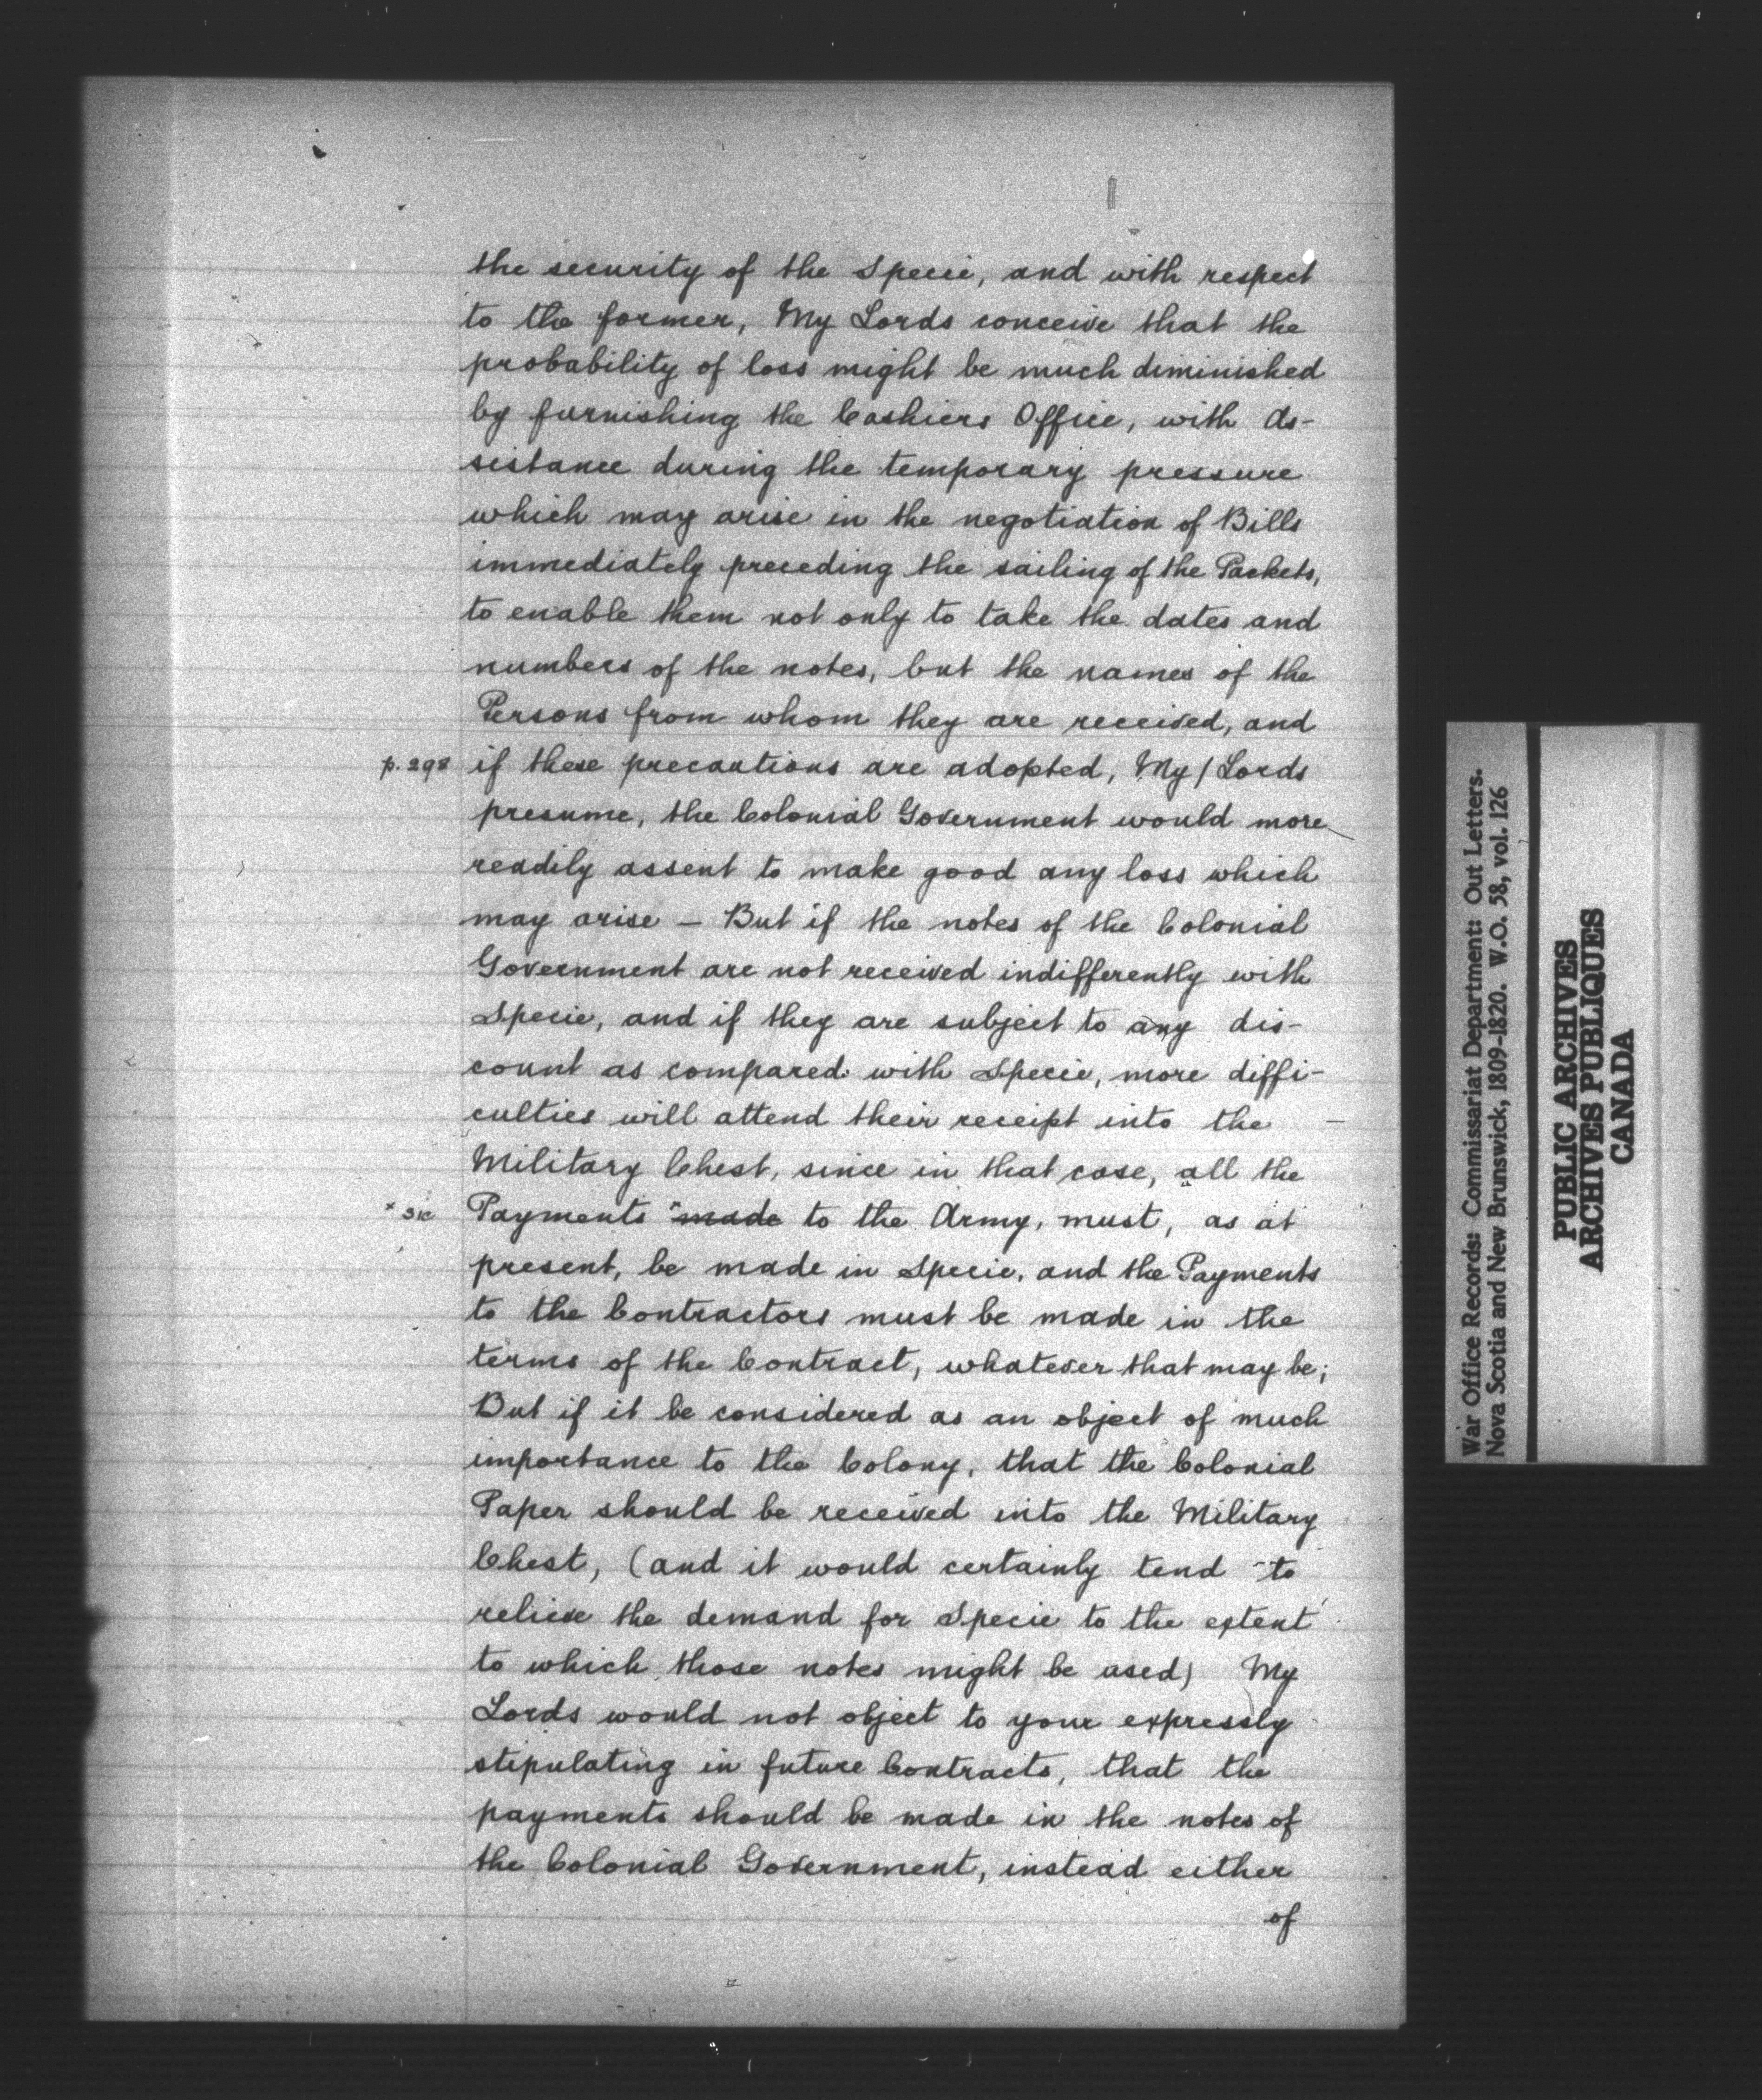 the security of the Specie, and with respect
to the former, My Lords conceive that the
probability of loss might be much diminished
by furnishing the Cashiers Office, with As-
sistance during the temporary pressure
which may arise in the negotiation of Bills
immediately preceding the sailing of the Packets,
to enable them not only to take the dates and
numbers of the notes, but the names of the
Persons from whom they are received, and
p. 298 if these precautions are adopted, My / Lords
presume, the Colonial Government would more
readily assent to make good any loss which
may arise – But if the notes of the Colonial
Government are not received indifferently with
Specie, and if they are subject to any dis-
count as compared with Specie, more diffi-
culties will attend their receipt into the
Military Chest, since in that case, all the
* sic Payments * made to the Army, must, as at
present, be made in Specie, and the Payments
to the Contractors must be made in the
terms of the Contract, whatever that may be;
But if it be considered as an object of much
importance to the Colony, that the Colonial
Paper should be received into the Military
Chest, (and it would certainly tend to
relieve the demand for Specie to the extent
to which those notes might be used) My
Lords would not object to your expressly
stipulating in future Contracts, that the
payments should be made in the notes of
the Colonial Government, instead either
of
War Office Records: Commissariat Department: Out Letters.
Nova Scotia and New Brunswick, 1809-1820. W.O. 58, vol. 126
PUBLIC ARCHIVES
ARCHIVES PUBLIQUES
CANADA